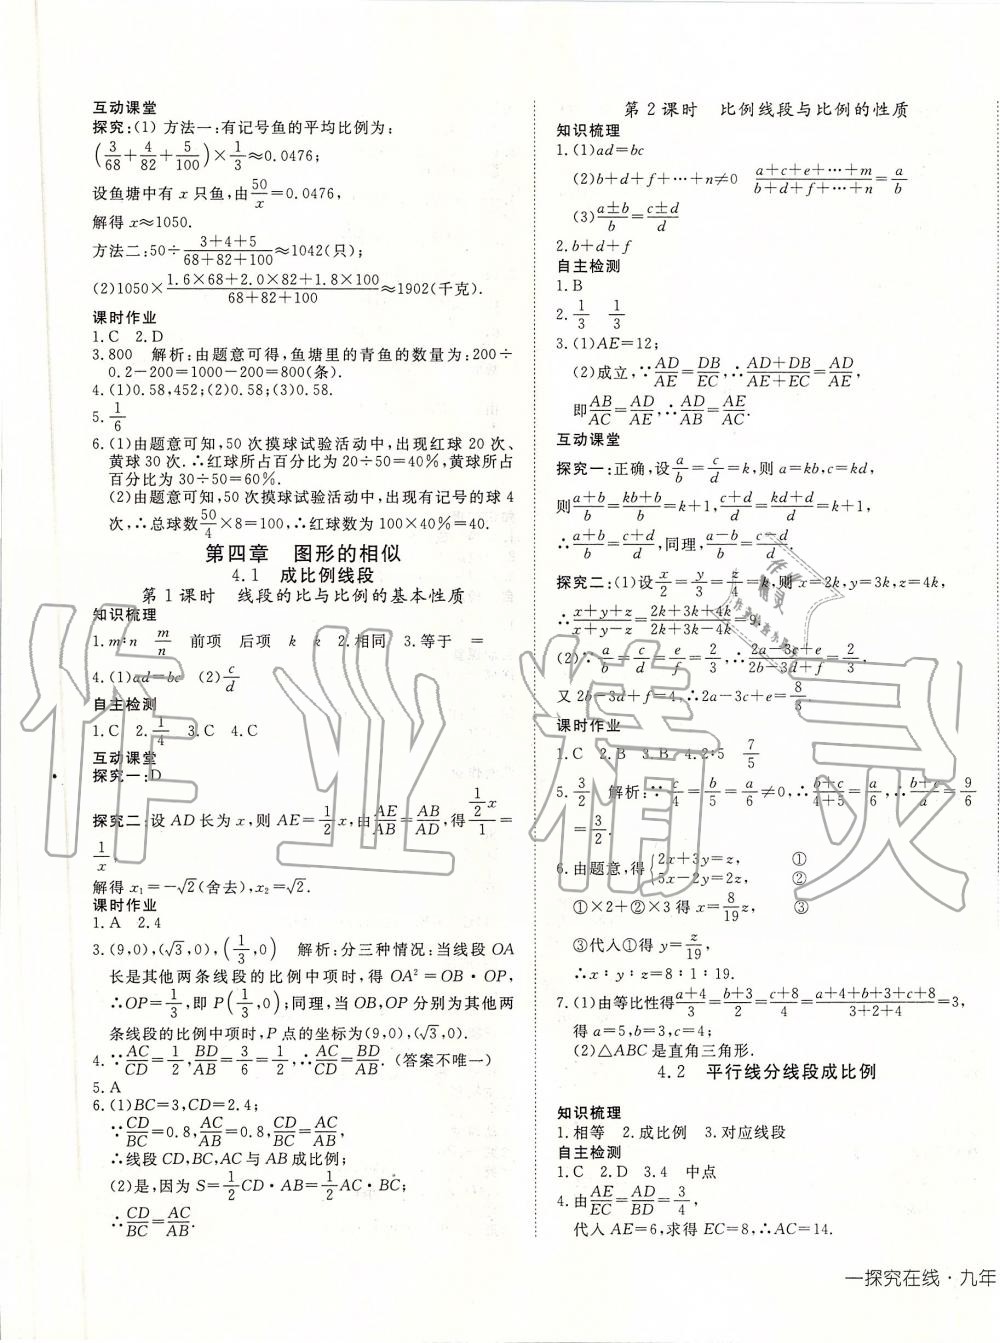 互动课堂
探究:(1) 方法一:有记号鱼的平均比例为:
(3/68+4/82+5/100)×1/3≈0.0476;
设鱼塘中有 x 只鱼,由50/x=0.0476,
解得 x≈1050.
方法二:50÷(3+4+5)/(68+82+100)≈1042(只);
(2)1050×(1.6×68+2.0×82+1.8×100)/(68+82+100)≈1902(千克).
课时作业
1.C 2.D
3.800 解析:由题意可得,鱼塘里的青鱼的数量为:200÷
0.2-200=1000-200=800(条).
4.(1)0.58,452;(2)0.58;(3)0.58.
5.1/6
6.(1)由题意可知,50 次摸球试验活动中,出现红球 20 次、
黄球 30 次.∴红球所占百分比为 20÷50=40%,黄球所占
百分比为 30÷50=60%.
(2)由题意可知,50 次摸球试验活动中,出现有记号的球 4
次,∴总球数50/4×8=100,∴红球数为 100×40%=40.
第四章 图形的相似
4.1 成比例线段
第 1 课时 线段的比与比例的基本性质
知识梳理
1.m∶n m/n 前项 后项 k k 2.相同 3.等于 =
4.(1)ad=bc (2)c/d
自主检测
1.C 2.1/4 3.C 4.C
互动课堂
探究一:D
探究二:设 AD 长为 x,则 AE=1/2x,由AE/AB=AB/AD,得(1/2x)/1=
1/x,
解得 x₁=-√2(舍去),x₂=√2.
课时作业
1.A 2.4
3.(9,0),(√3,0),(1/3,0) 解析:分三种情况:当线段 OA
长是其他两条线段的比例中项时,得 OA²=OB·OP,
∴OP=1/3,即 P(1/3,0);同理,当 OB,OP 分别为其他两
条线段的比例中项时,P 点的坐标为(9,0),(√3,0).
4.∵AC/CD=1/2,BD/AB=3/6=1/2,∴AC/CD=BD/AB.(答案不唯一)
5.A
6.(1)BC=3,CD=2.4;
∵CD/BC=0.8,AC/AB=0.8,CD/BC=AC/AB,
∴线段 CD,BC,AC 与 AB 成比例;
(2)是,因为 S=1/2CD·AB=1/2AC·BC;
∴CD/BC=AC/AB.
第 2 课时 比例线段与比例的性质
知识梳理
1.(1)ad=bc
(2)b+d+f+…+n≠0 (a+c+e+…+m)/(b+d+f+…+n)=a/b
(3)(a±b)/b=(c±d)/d
2.b+d+f
自主检测
1.B
2.1/3 1/3
3.(1)AE=12;
(2)成立,∵AD/AE=DB/EC,∴(AD+DB)/(AE+EC)=AD/AE,
即AB/AC=AD/AE,∴AD/AB=AE/AC.
互动课堂
探究一:正确,设a/b=c/d=k,则 a=kb,c=kd,
则(a+b)/b=(kb+b)/b=k+1,(c+d)/d=(kd+d)/d=k+1,
∴(a+b)/b=(c+d)/d,同理,(a-b)/b=(c-d)/d.
探究二:(1)设x/2=y/3=z/4=k,则 x=2k,y=3k,z=4k,
∴(x+y+z)/(x+y-z)=(2k+3k+4k)/(2k+3k-4k)=9.
(2)∵a/b=c/d=e/f=2/3,∴(2a-3c+e)/(2b-3d+f)=2/3,
又 2b-3d+f=4,∴2a-3c+e=8/3
课时作业
1.C 2.B 3.B 4.2∶5 7/5
5.3/2 解析:∵c/4=b/5=a/6≠0,∴(b+c)/(4+5)=a/6,∴(b+c)/a=9/6
=3/2.
6.由题意,得{2x+3y=z, ①
5x-2y=z, ②
①×2+②×3 得 x=8/19z, ③
③代入①得 y=z/19,
∴x∶y∶z=8∶1∶19.
7.(1)由等比性得(a+4)/3=(b+3)/2=(c+8)/4=(a+4+b+3+c+8)/(3+2+4)=3,
得 a=5,b=3,c=4;
(2)△ABC 是直角三角形.
4.2 平行线分线段成比例
知识梳理
1.相等 2.成比例 3.对应线段
自主检测
1.C 2.D 3.4 中点
4.由AE/EC=AD/BD=3/4,
代入 AE=6,求得 EC=8,∴AC=14.
一探究在线·九年
作业精灵